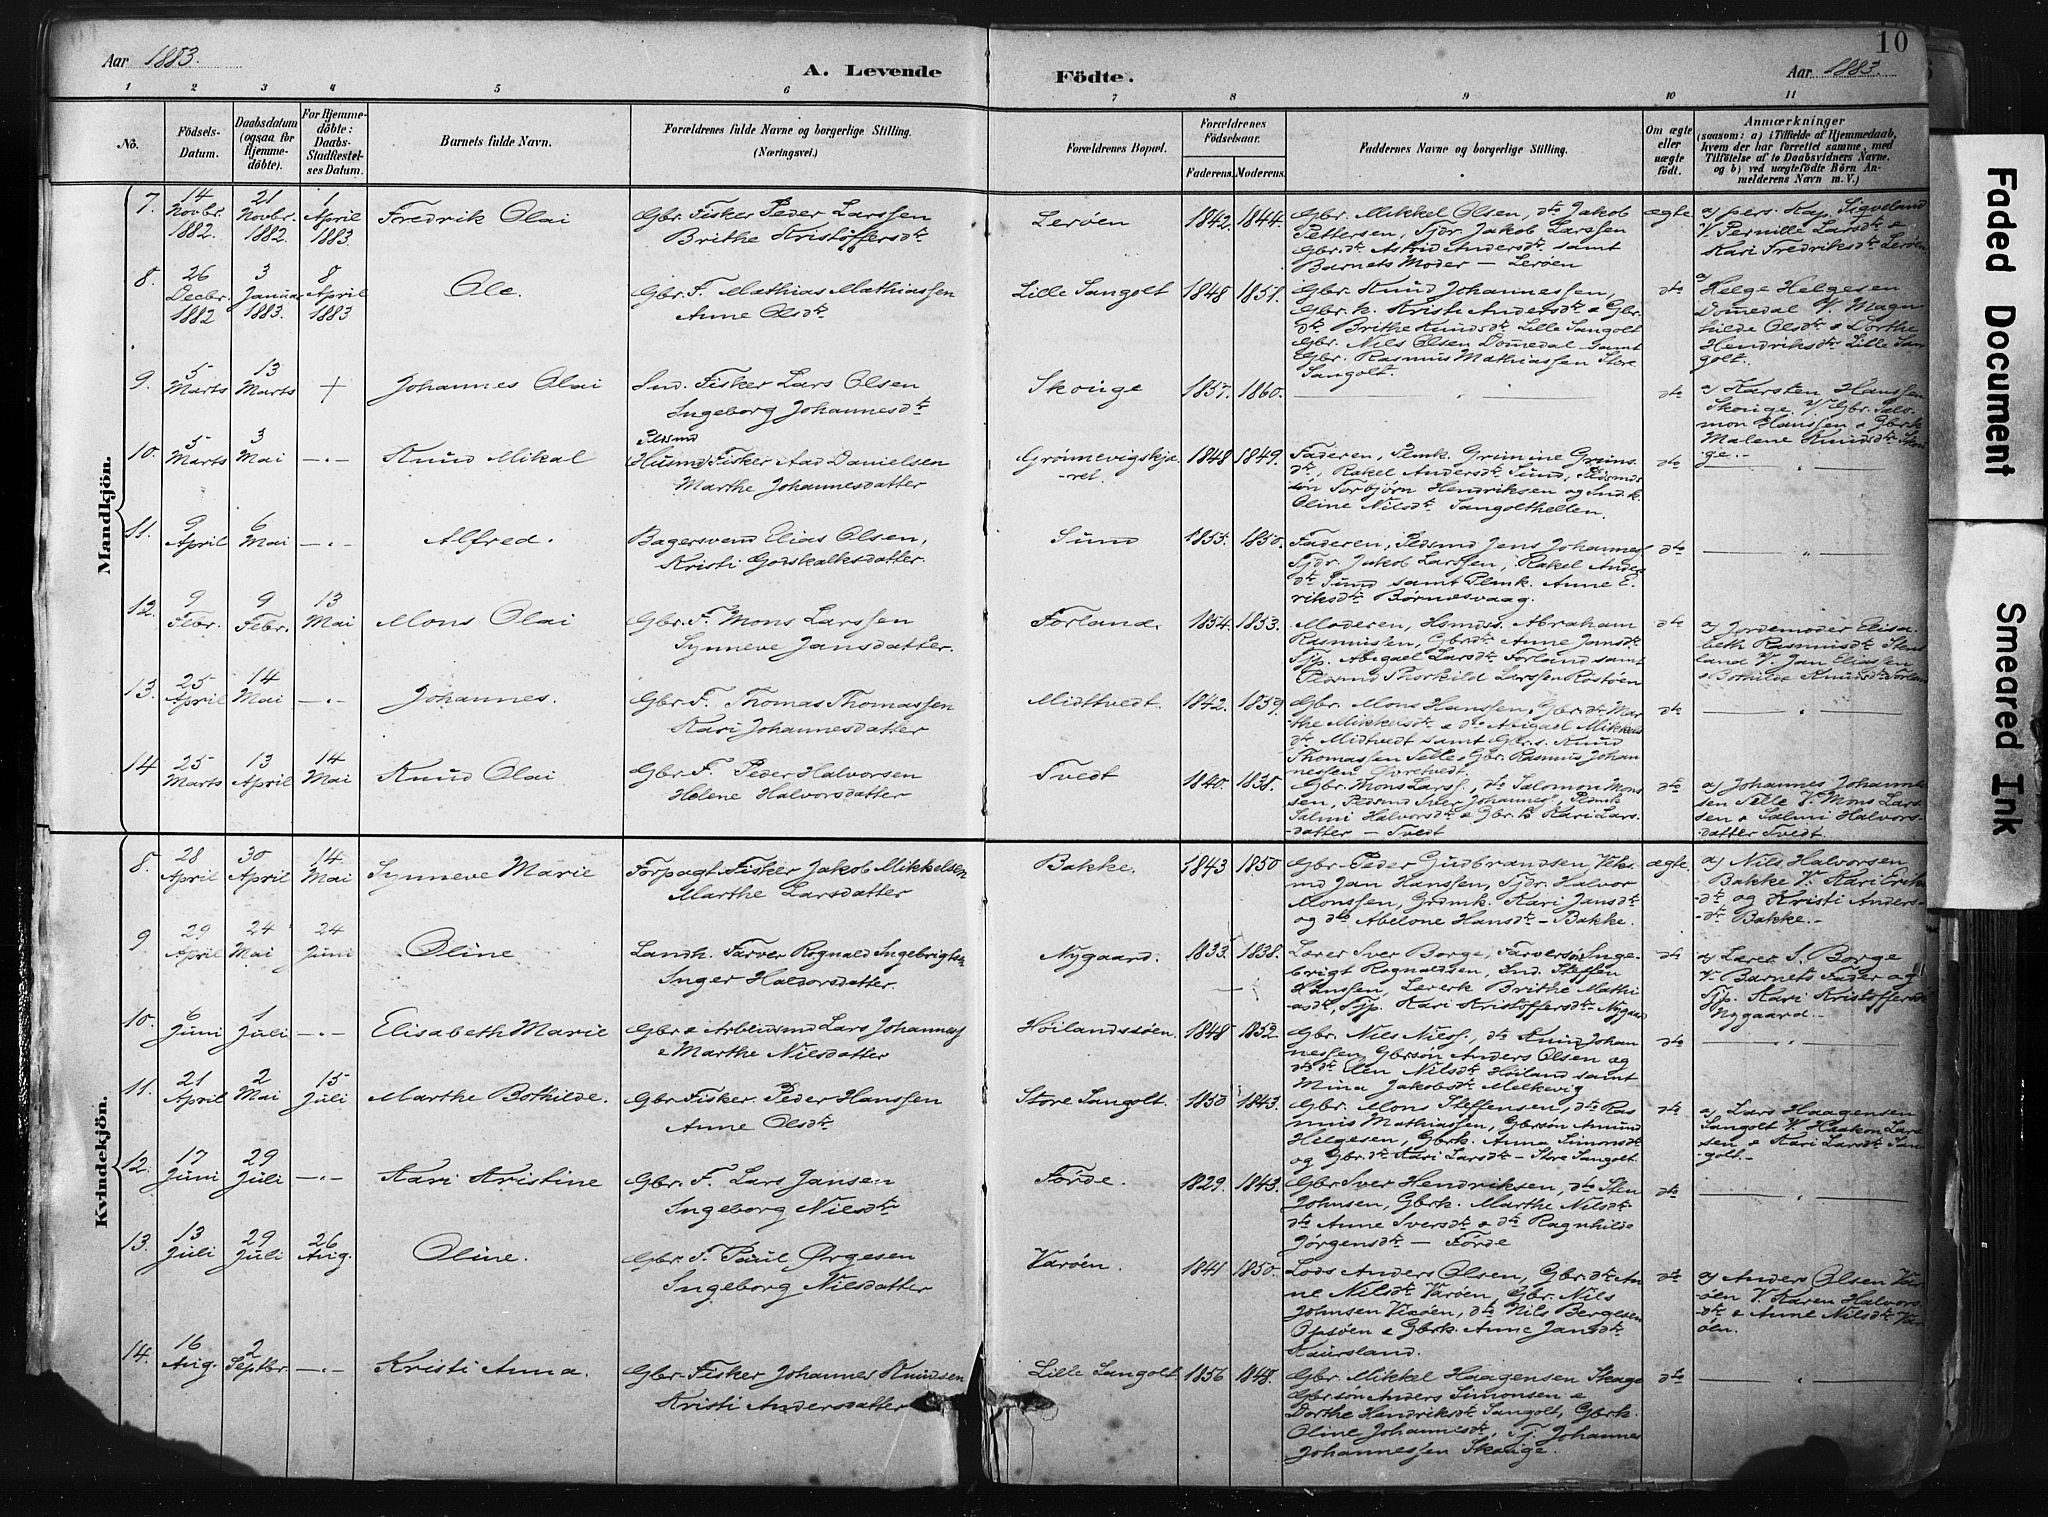 10
Aar 1883.
A. Levende
Födte.
Aar 1883.
1 2 3 4 5 6 7 8 9 10 11
No.
Födsels-
Datum.
Daabsdatum
(ogsaa for
Hjemme-
döbte).
For Hjemme-
döbte:
Daabs-
Stadfæstel-
ses Datum.
Barnets fulde Navn.
Forældrenes fulde Navne og borgerlige Stilling.
(Næringsvei.)
Forældrenes Bopæl.
Forældrenes
Födselsaar.
Faderens. Moderens.
Faddernes Navne og borgerlige Stilling.
Om ægte
eller
uægte
födt.
Anmærkninger
(saasom: a) i Tilfælde af Hjemmedaab,
hvem der har forrettet samme, med
Tilföielse af to Daabsvidners Navne.
og b) ved uægtefödte Börn An-
melderens Navn m. V.)
Mandkjön.
7.
14
Novbr.
1882.
21
Novbr.
1882.
1
April
1883.
Fredrik Olai
Gbr. Fisker Peder Larssen
Brithe Kristoffersdt.
Lerøen
1842. 1844.
Gbr. Mikkel Olsen, dto Jakob
Pettersen, Tjdr. Jakob Larssen
Gbr.dt. Astrid Andersdt. samt
Barnets Moder – Lerøen
ægte
a) pers. Kap. Sigvelund
V. Pernille Larsdt. &
Kari Fredriksdt. Lerøen
8.
26
Decbr.
1882
3
Januar
1883.
8
April
1883
Ole.
Gbr. F. Mathias Mathiassen
Anne Olsdt.
Lille Sangolt
1848 1851.
Gbr. Knud Johannessen,
Gbr.k. Kristi Andersdt. & Gbr.
dt. Brithe Knudsdt. Lille Sangolt
Gbr. Nils Olsen Domedal samt
Gbr. Rasmus Mathiassen Store
Sangolt.
dto
a)
Helge Helgesen
Domedal V. Magn
hilde Olsdt. & Dorthe
Hendriksdt. Lille San
golt.
9.
5
Marts
13
Marts
+
Johannes Olai
Ind. Fisker Lars Olsen
Ingeborg Johannesdt.
Skouge
1857. 1860.
dto
a) Karsten Hanssen
Skouge, V. Gbr. Salo-
mon Hanssen & Gbrk
Malene Knudsdt. Skou
ge.
10.
5
Marts
3
Mai
Knud Mikal
Pldsmd
Husmd Fisker Aad Danielsen
Marthe Johannesdatter
Grönnevigskjæ
-ret.
1848 1849.
Faderen, Plmk. Grimine Grims
dt., Rakel Andersdt. Sund, Pldsmds
søn Torbjörn Hendriksen og Ind.k.
Oline Nilsdt. Sangolthellen.
dto
11.
9
April
6
Mai
Alfred.
Bagersvend Elias Olsen,
Kristi Godskalksdatter.
Sund
1855. 1850.
Faderen, Pldsmd Jens Johannes
Tjdr. Jakob Larssen, Rakel Anders
dt. Sund samt Plmk. Anne E-
riksdt. Børnesvaag.
dto
12.
9
Febr.
9
Febr.
13
Mai
Mons Olai
Gbr. F. Mons Larssen
Synneve Jansdatter.
Forland.
1854. 1853.
Moderen, Hsmds. Abraham
Rasmussen, Gbr.dt. Anne Jansdt.
Tjp. Abigael Larsdt. Forland samt
Pldsmd Thorkild Larssen Rostøen
dto
a) Jordemoder Elisa-
beth Rasmusdt. Stens
land V. Jan Eliassen
& Bothilde Knudsdt. Forland
13.
25
April
14
Mai
Johannes.
Gbr. F. Thomas Thomassen
Kari Johannesdatter
Midtvedt.
1842. 1859.
Gbr. Mons Hanssen, Gbr.dt. Mar
the Mikkelsdt. & dto Abigael Mikkels
dt. Midtvedt samt Gbr.s. Knud
Thomassen Telle & Gbr. Rasmus Johan
nessen Øvretvedt.
dto
14.
25
Marts
13
April
14
Mai
Knud Olai
Gbr. F. Peder Halvorsen
Helene Halvorsdatter
Tvedt
1840. 1838.
Gbr. Mons Larss., dto Salomon Mons
sen, Pldsmd Iver Johanness., Pldmk
Salmi Halvorsdt. & Gbr.k. Kari Lars-
datter – Tvedt
dto
a) Johannes Johannes
sen Telle V. Mons Lars
sen & Salmi Halvors-
datter Tvedt.
Kvindekjön.
8.
28
April
30
April
14
Mai
Synneve Marie
Forpagt. Fisker Jakob Mikkelsen
Marthe Larsdatter
Bakke.
1843 1850
Gbr. Peder Gudbrandsen,
md Jan Hanssen, Tjdr. Halvor
Monssen, Grdmk. Kari Jansdt.
og dto Abelone Hansdt. – Bakke.
ægte.
a) Nils Halvorsen
Bakke V. Kari Eriks
-dt. og Kristi Anders-
-dt. Bakke.
9
29
April
24
Mai
24
Juni
Oline
Landh. Farver Rognald Ingebrigtsen
Inger Haldorsdatter.
Nygaard.
1833. 1838.
Lærer Iver Borge, Farversøn Inge
brigt Rognaldsen, Ind. Steffen
Hanssen, Lærerk Brithe Mathi
asdt., Tjp. Kari Kristoffersdt. – Nygaard
dto
a) Lærer I. Borge
V. Barnets Fader og
Tjp. Kari Kristoffersdt
Nygaard.
10.
6
Juni
1
Juli
Elisabeth Marie
Gbr & Arbeidsmd Lars Johanness
& Marthe Nilsdatter
Höilandssöen.
1848 1852
Gbr. Nils Nilss., dto Knud Johan
nessen Gbrsøn Anders Olsen og
dt. Elen Nilsdt. Höiland samt
Mina Jakobsdt. Melkevig
dto
11.
21
April
2
Mai
15
Juli
Marthe Bothilde.
Gbr Fisker. Peder Hanssen
Anne Olsdt.
Store Sangolt.
1850 1843.
Gbr. Mons Steffensen, dto Ras
mus Mathiassen, Gbrsøn Amund
Helgesen, Gbrk. Anna Simonsdt
og Gbr.dt. Kari Larsdt. – Store Sangolt.
dto
a) Lars Haagensen
Sangolt V. Haakon Lars
sen & Kari Larsdt. San
golt.
12.
17
Juni
29
Juli
Kari Kristine
Gbr. F. Lars Jansen
Ingeborg Nilsdt.
Förde.
1829. 1843.
Gbr Iver Hendriksen, dto Sten
Johnsen, Gbrk. Marthe Nilsdt.
dto Anne Iversdt. & dto Ragnhilde
Jörgensdt. – Förde
dto
13.
13
Juli
29
Juli
26
Aug.
Oline.
Gbr. F. Paul Ørgesen
Ingeborg Nilsdatter
Varöen.
1841 1850.
Lods Anders Olsen, Gbr.dt. An
ne Nilsdt. Varöen, Gbr. Nils
Johnsen Viröen, dto Nils Børgesen
Opsöen & Gbrk. Anne Jansdt.
Kaursland.
dto
a) Anders Olsen Var
öen V. Karen Halvors
-dt. & Anne Nilsdt. Var
öen.
14.
16
Aug.
2
Septbr.
Kristi Anna.
Gbr. Fisker Johannes Knudsen
Kristi Andersdatter
Lille Sangolt
1856 1848.
Gbr. Mikkel Haagensen Skage
Gbrsøn Anders Simonsen &
Dorthe Hendriksdt. Sangolt, Gbrk.
Oline Johannesdt., Tj. Johannes
Johannessen Skouge.
dto
Faded Document
Smeared Ink